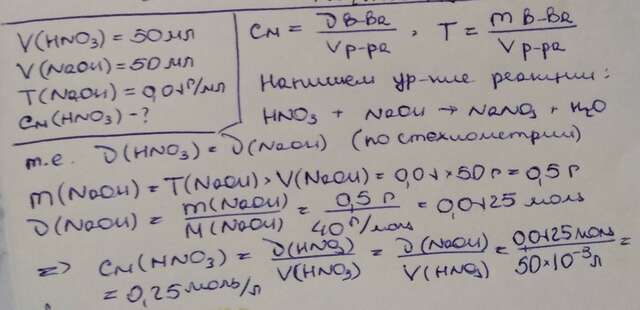 V(HNO₃) = 50 мл
V(NaOH) = 50 мл
T(NaOH) = 0,01 г/мл
Cм(HNO₃) - ?
Cм = ν в-ва / V р-ра , T = m в-ва / V р-ра
Напишем ур-ние реакции:
HNO₃ + NaOH → NaNO₃ + H₂O
т.е. ν(HNO₃) = ν(NaOH) (по стехиометрии)
m(NaOH) = T(NaOH) × V(NaOH) = 0,01 × 50 г = 0,5 г
ν(NaOH) = m(NaOH) / M(NaOH) = 0,5 г / 40 г/моль = 0,0125 моль
=> Cм(HNO₃) = ν(HNO₃) / V(HNO₃) = ν(NaOH) / V(HNO₃) = 0,0125 моль / 50×10⁻³ л =
= 0,25 моль/л